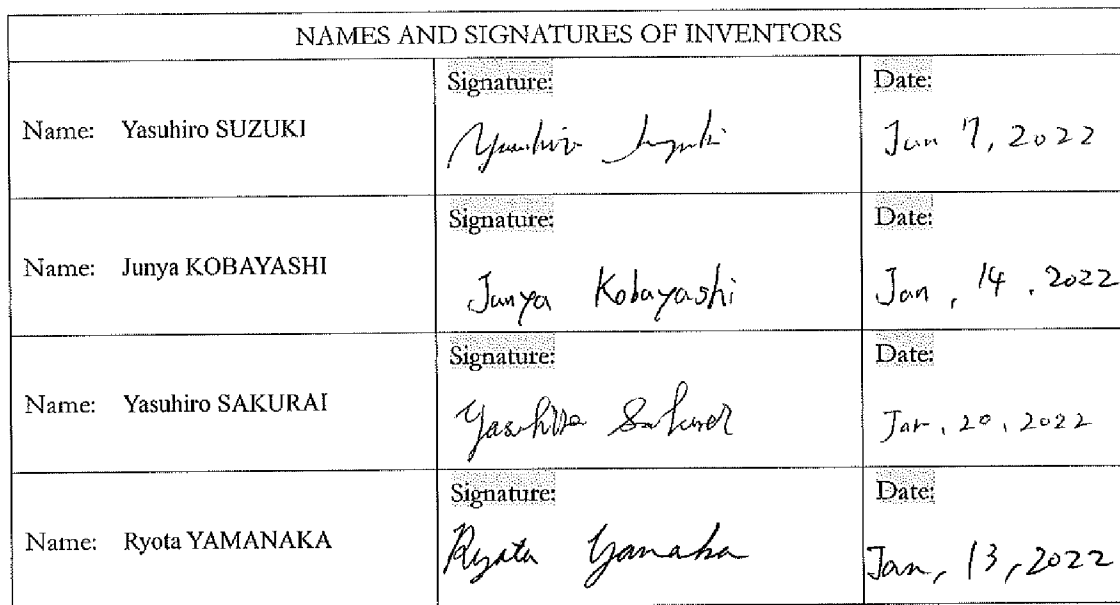 NAMES AND SIGNATURES OF INVENTORS
Name: Yasuhiro SUZUKI
Signature:
Yasuhiro Suzuki
Date:
Jan 7, 2022
Name: Junya KOBAYASHI
Signature:
Junya Kobayashi
Date:
Jan, 14, 2022
Name: Yasuhiro SAKURAI
Signature:
Yasuhiro Sakurai
Date:
Jan, 20, 2022
Name: Ryota YAMANAKA
Signature:
Ryota Yamanaka
Date:
Jan, 13, 2022